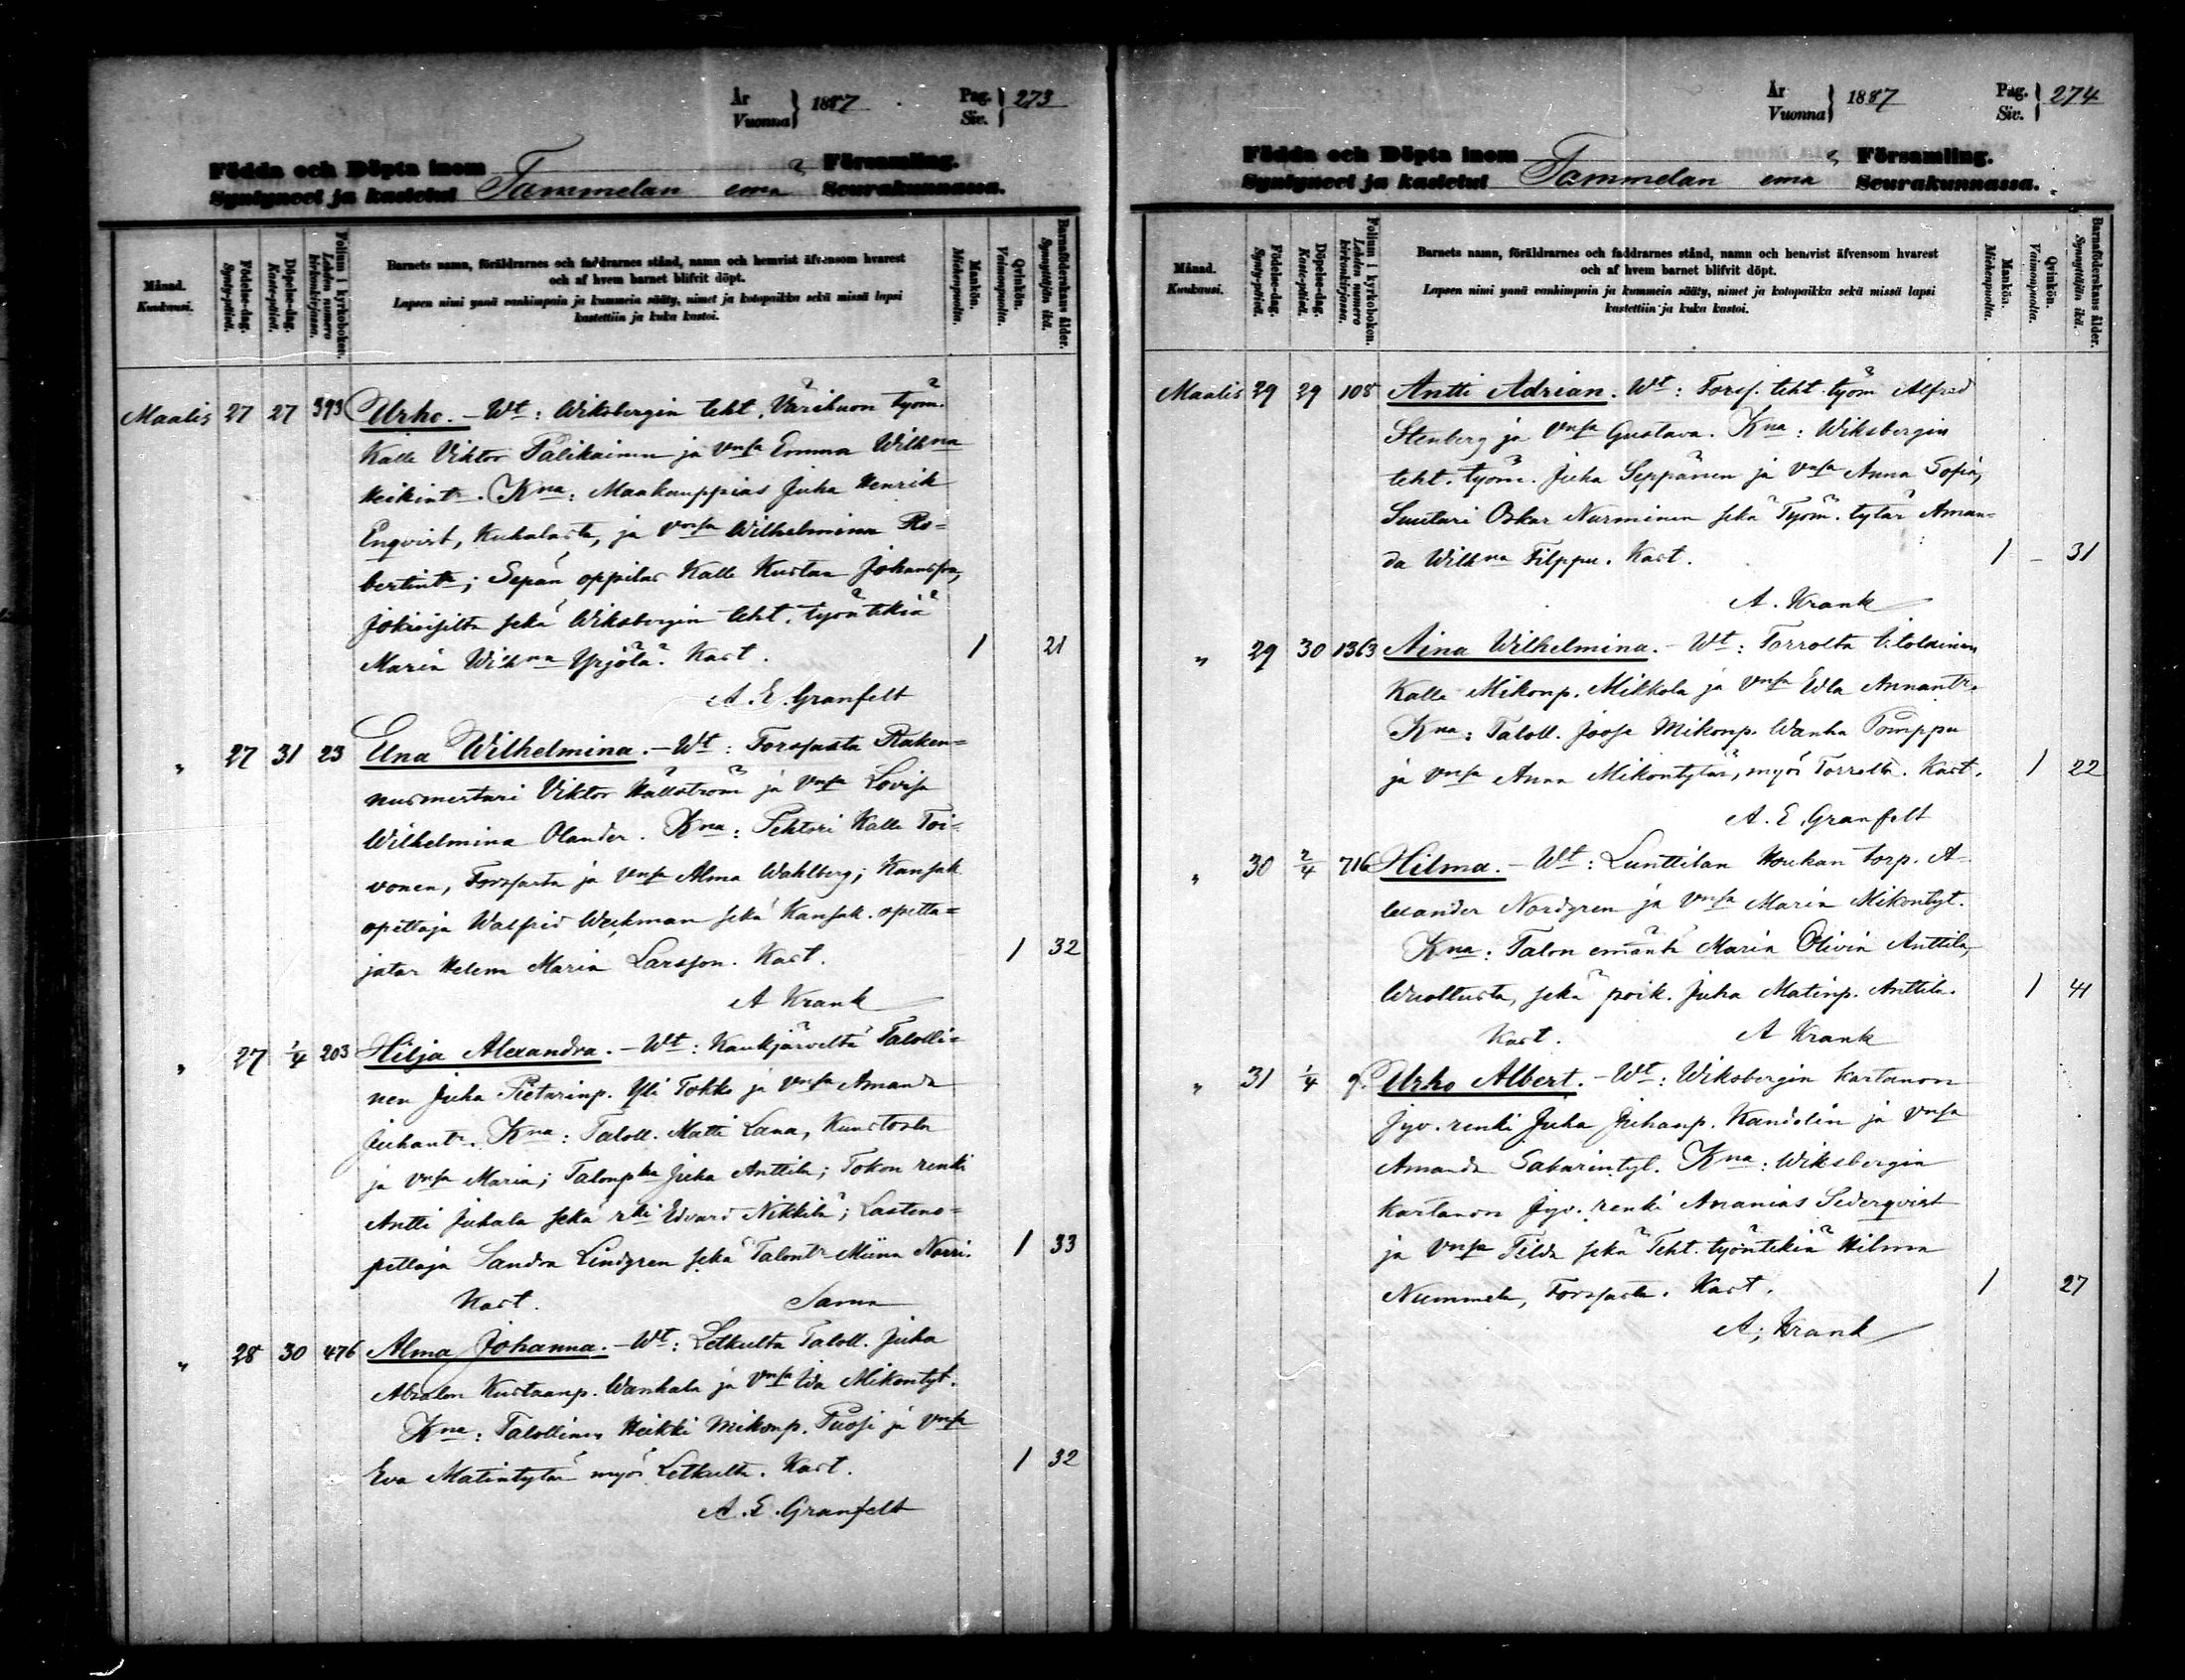 År
Vuonna } 1887
Pag.
Siv. } 273
Födda och Döpta inom
Syntyneet ja kastetut Tammelan emä Församling.
Seurakunnassa.
Månad.
Kuukausi.
Födelse-dag.
Synty-päivä.
Döpelse-dag.
Kaste-päivä.
Folium i kyrkoboken.
Lehden numero kirkonkirjassa.
Barnets namn, föräldrarnes och faddrarnes stånd, namn och hemvist äfvensom hvarest
och af hvem barnet blifvit döpt.
Lapsen nimi ynnä vanhimpain ja kummein sääty, nimet ja kotopaikka sekä missä lapsi
kastettiin ja kuka kastoi.
Mankön.
Miehenpuolia.
Qvinkön.
Vaimonpuolia.
Barnaföderskans ålder.
Synnyttäjän ikä.
Maalis 27 27 393 Urho. - Wt: Wiksbergin teht. Värihuon työm.
Kalle Viktor Palikainen ja vnsa Emma Wilhna
Heikintr. Kna: Maakauppias Juha Henrik
Enqvist, Kuhalasta, ja vnsa Wilhelmina Ro=
bertintr; Sepän oppilas Kalle Kustaa Johansson,
Jokioisilta sekä Wiksbergin teht. työntekiä
Maria Wilhna Yrjölä. Kast. 1 21
A. E. Granfelt
" 27 31 23 Elna Wilhelmina. - Wt: Forssasta Raken=
nusmestari Viktor Hällström ja vnsa Lovisa
Wilhelmina Olander. Kna: Tehtori Kalle Toi=
vonen, Forssasta ja vnsa Alma Wahlberg; Kansak.
opettaja Walfrid Weckman sekä Kansak. opetta=
jatar Helena Maria Larsson. Kast. 1 32
A Krank
" 27 1/4 203 Hilja Alexandra. - Wt: Kaukjärveltä Talolli=
nen Juha Pietarinp. Yli Tokko ja vnsa Amanda
Juhantr. Kna: Taloll. Matti Lana, Kuustosta
ja vnsa Maria; Talonpka Juha Anttila; Tokon renki
Antti Juhala sekä rki Edvard Nikkilä; Lasteno=
pettaja Sandra Lindgren sekä Talontr Miina Norri. 1 33
Kast. Sama
" 28 30 476 Alma Johanna. - Wt: Letkulta Taloll. Juha
Absalon Kustaanp. Wanhala ja vnsa Ida Mikontyt.
Kna: Talollinen Heikki Mikonp. Puosi ja vnsa
Eva Matintytär myös Letkulta. Kast. 1 32
A. E. Granfelt
År
Vuonna } 1887
Pag.
Siv. } 274
Födda och Döpta inom
Syntyneet ja kastetut Tammelan emä Församling.
Seurakunnassa.
Månad.
Kuukausi.
Födelse-dag.
Synty-päivä.
Döpelse-dag.
Kaste-päivä.
Folium i kyrkoboken.
Lehden numero kirkonkirjassa.
Barnets namn, föräldrarnes och faddrarnes stånd, namn och hemvist äfvensom hvarest
och af hvem barnet blifvit döpt.
Lapsen nimi ynnä vanhimpain ja kummein sääty, nimet ja kotopaikka sekä missä lapsi
kastettiin ja kuka kastoi.
Mankön.
Miehenpuolia.
Qvinkön.
Vaimonpuolia.
Barnaföderskans ålder.
Synnyttäjän ikä.
Maalis 29 29 108 Antti Adrian. Wt: Forss. teht. työm Alfred
Stenberg ja vnsa Gustava. Kna: Wiksbergin
teht. työm. Juha Seppänen ja vnsa Anna Sofia,
Suutari Oskar Nurminen sekä Työm. tytär Aman=
da Wilhna Filppu. Kast. 1 - 31
A. Krank
" 29 30 1363 Aina Wilhelmina. - Wt: Torrolta Itolainen
Kalle Mikonp. Mikkola ja vnsa Edla Annantr.
Kna: Taloll. Joose Mikonp. Wanha Pomppu
ja vnsa Anna Mikontytär, myös Torrolta. Kast. 1 22
A. E. Granfelt
" 30 2/4 716 Hilma. - Wt: Lunttilan Houkan torp. A-
lexander Nordgren ja vnsa Maria Mikontyt.
Kna: Talon emäntä Maria Olivia Anttila,
Wuoltusta, sekä poik. Juha Matinp. Anttila. 1 41
Kast. A Krank
" 31 1/4 Urho Albert. - Wt: Wiksbergin kartanon
Jyv. renki Juha Juhanp. Kandolin ja vnsa
Amanda Sakarintyt. Kna: Wiksbergin
kartanon Jyv. renki Ananias Sederqvist
ja vnsa Tilda sekä Teht. työntekiä Hilma
Nummela, Forssasta. Kast. 1 27
A. Krank